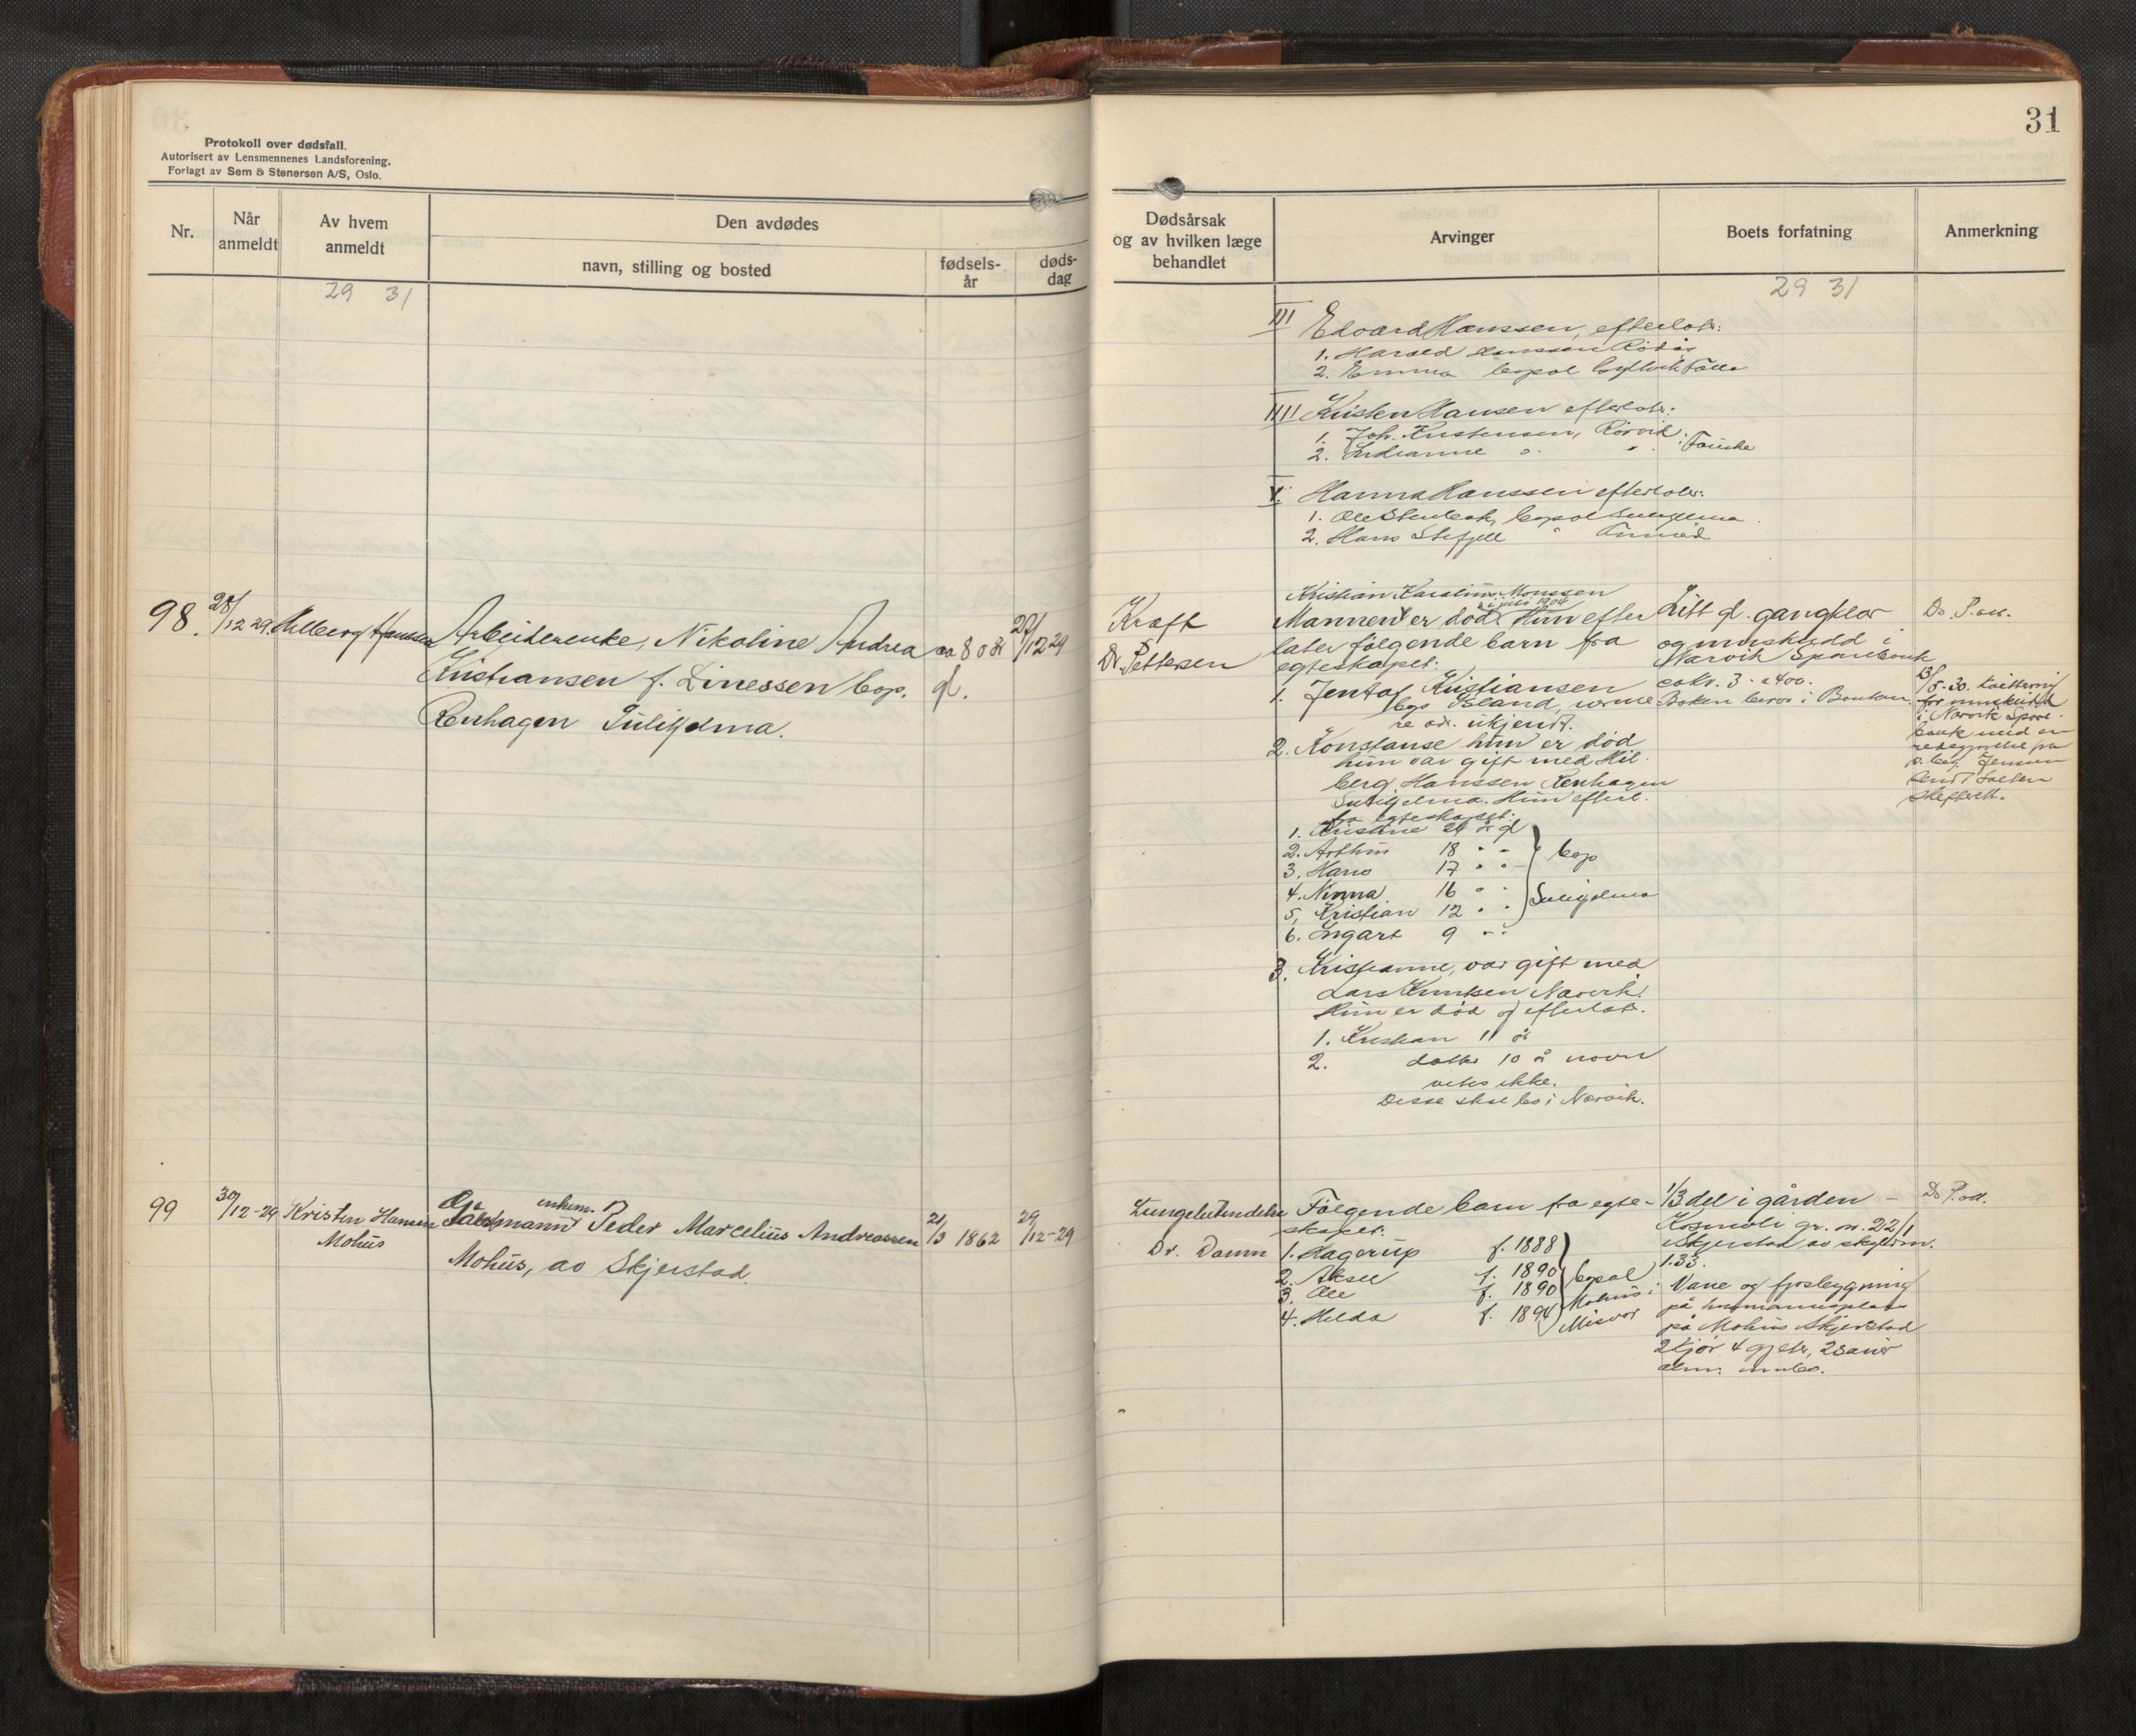 Protokoll over dødsfall.
Autorisert av Lensmennenes Landsforening.
Forlagt av Sem & Stenersen A/S, Oslo.
Nr.
Når anmeldt
Av hvem anmeldt
Den avdødes
navn, stilling og bosted
fødsels-år
døds-dag
29 31
98. 28/12 29 Hilberg Hanssen Arbeiderenke, Nikoline Andrea ca 80 år 27/12 29
Kristiansen f. Linessen bop. gl.
Renhagen Sulitjelma.
99 30/12-29 Kristen Hansen Mohus
enkem.
Gårdmann Peder Marcelius Andreassen 21/3 1862 29/12-29
Mohus, av Skjerstad
31
Dødsårsak og av hvilken læge behandlet
Arvinger
Boets forfatning
Anmerkning
29 31
III Edvard Hanssen, efterlot:
1. Harald Hanssen Rødås
2. Emma bopal Fauske
IIII Kristen Hansen efterlot:
1. Joh. Kristensen, Rørvik
2. Indianne " " Fauske
V. Hanna Hanssen efterlater:
1. Ole bopal Sulitjelma
2. Hans "
Kraft
Dr. Pettersen
Kristian Karstinus Monssen
i juli 1904
Mannen er død. Hun efter
later følgende barn fra
egteskapet:
1. Jentof Kristiansen
bop Island, nærme
re adr. ukjendt.
2. Konstanse hun er død
hun var gift med Hil-
berg Hanssen Renhagen
Sulitjelma. Hun efterl.
fra egteskapet:
1. Kristine 24 år gl
2. Arthur 18 " "
3. Hans 17 " "
4. Ninna 16 " "
5. Kristian 12 " "
6. Ingart 9 " "
bop
Sulitjelma
3. Kristianne, var gift med
Lars Knutsen Narvik.
Hun er død og efterlot.
1. Kristian 11 år
2. datter 10 år navn
vites ikke.
Disse skal bo i Narvik.
Litt gl. gangklær
og innskudd i
Narvik Sparebank
ca kr. 3-400.
Boken beror i Banken.
Do P.att.
13/5-30. kvittering
for innskudd
i Narvik Spare-
bank med en
redegjørelse fra
p. bet. Jenssen
sendt Salten
skifterett.
Lungebetendelse
Dr. Damm
Følgende barn fra egte-
skapet:
1. Hagerup f. 1888
2. Aksel f. 1890
3. Ole f. 1890
4. Hilda f. 1894
bopal
Mohus i
Misvær
1/3 del i gården
Kosmoli gr. nr. 22/1
i Skjerstad av skyldm.
1.33.
Våne og fjøsbygning
på husmannsplass
på Mohus Skjerstad
2 kjør 4 gjeter, 2 sauer
alm. innbo.
Do P.att.